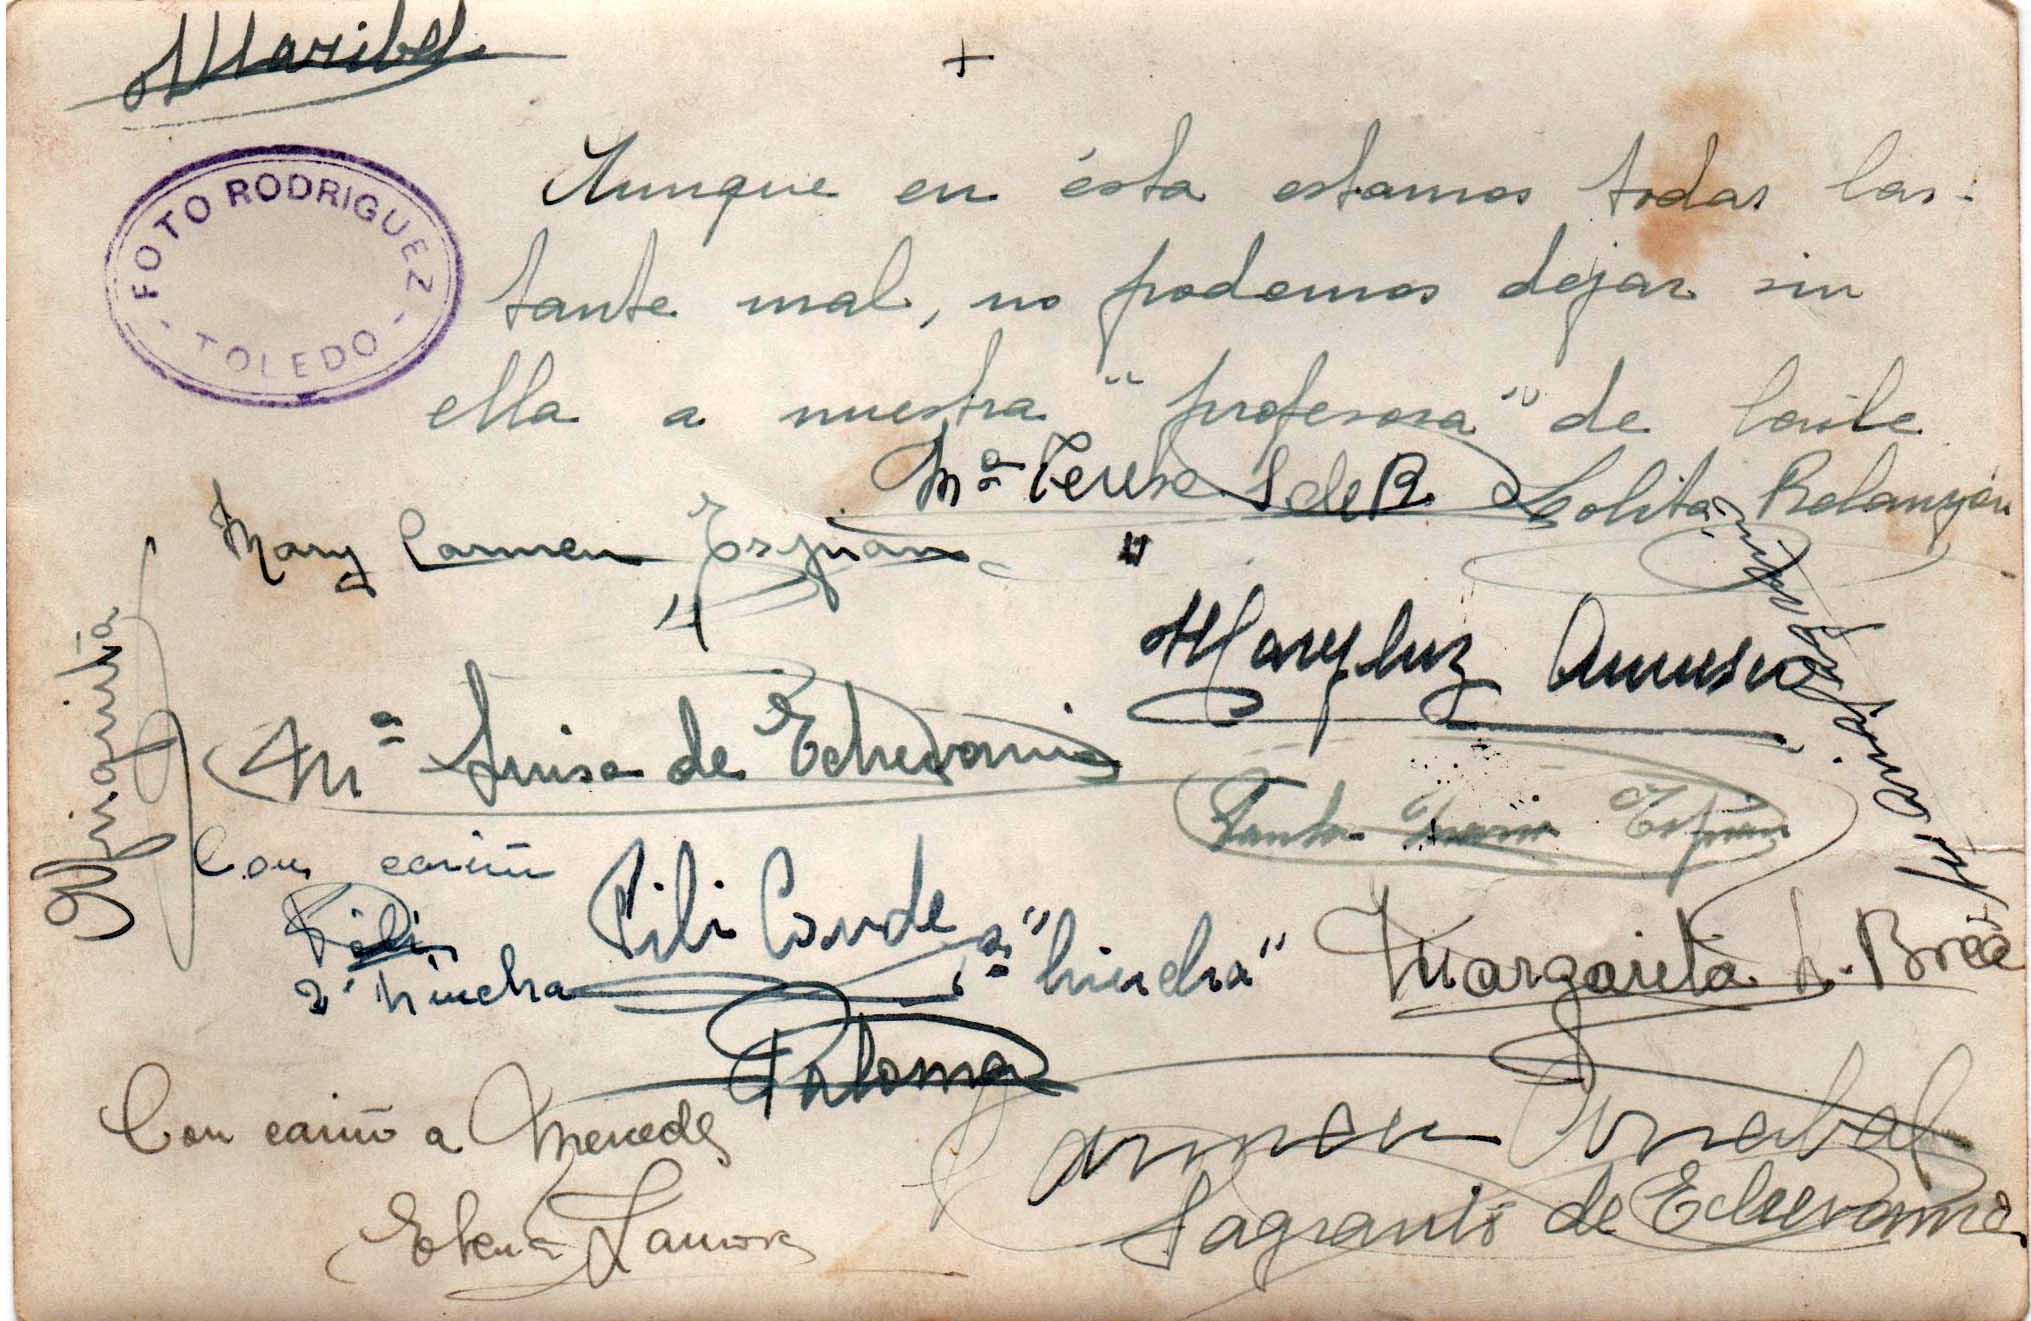 Maribel
+
FOTO RODRIGUEZ
- TOLEDO -
Aunque en ésta estamos todas bas-
tante mal, no podemos dejar sin
ella a nuestra "profesora" de baile
Mª Teresa S de R.
Lolita
Mary Carmen Espian
Mary luz
Mª Luisa de Echevarria
Con cariño
Pili
2ª hincha
Pili Conde
1ª "hincha"
Margarita L. Brea
Paloma
Con cariño a Mercedes
Elena Zamora
Carmen Arrabal
Sagrario de Echevarria